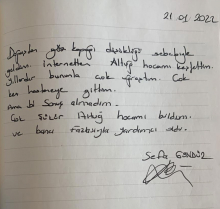 21.01.2022
Doğuştan göz kapağı düşüklüğü sebebiyle
geldim. İnternetten Altuğ hocamı keşfettim.
yıllardır bununla çok uğraştım. Çok
kez hastaneye gittim.
Ama bi sonuç almadım.
Çok şükür Altuğ hocamı buldum.
ve bana fazlasıyla yardımcı oldu.
Sefa GÜNDÜZ